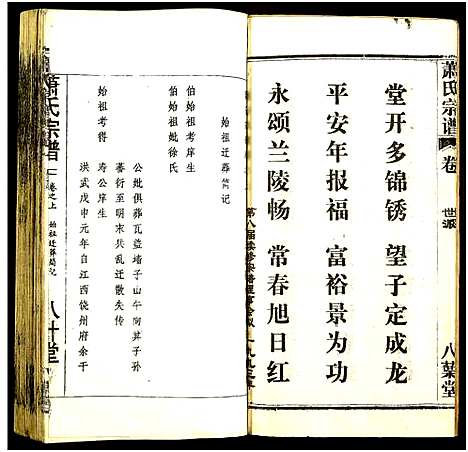 萧氏宗谱 卷 世派 八葉堂
堂开多锦锈 望子定成龙
平安年报福 富裕景为功
永颂兰陵畅 常春旭日红
第八届续修宗谱理事会
始祖迁葬简记
伯始祖考岸生
伯始祖妣徐氏
公妣俱葬瓦盆墙子山午向其子孙
蕃衍至明末兵乱迁散失传
始祖考得
寿公岸生
洪武戊申元年自江西饶州府余干
萧氏宗谱 卷之上 始祖迁葬简记 八叶堂